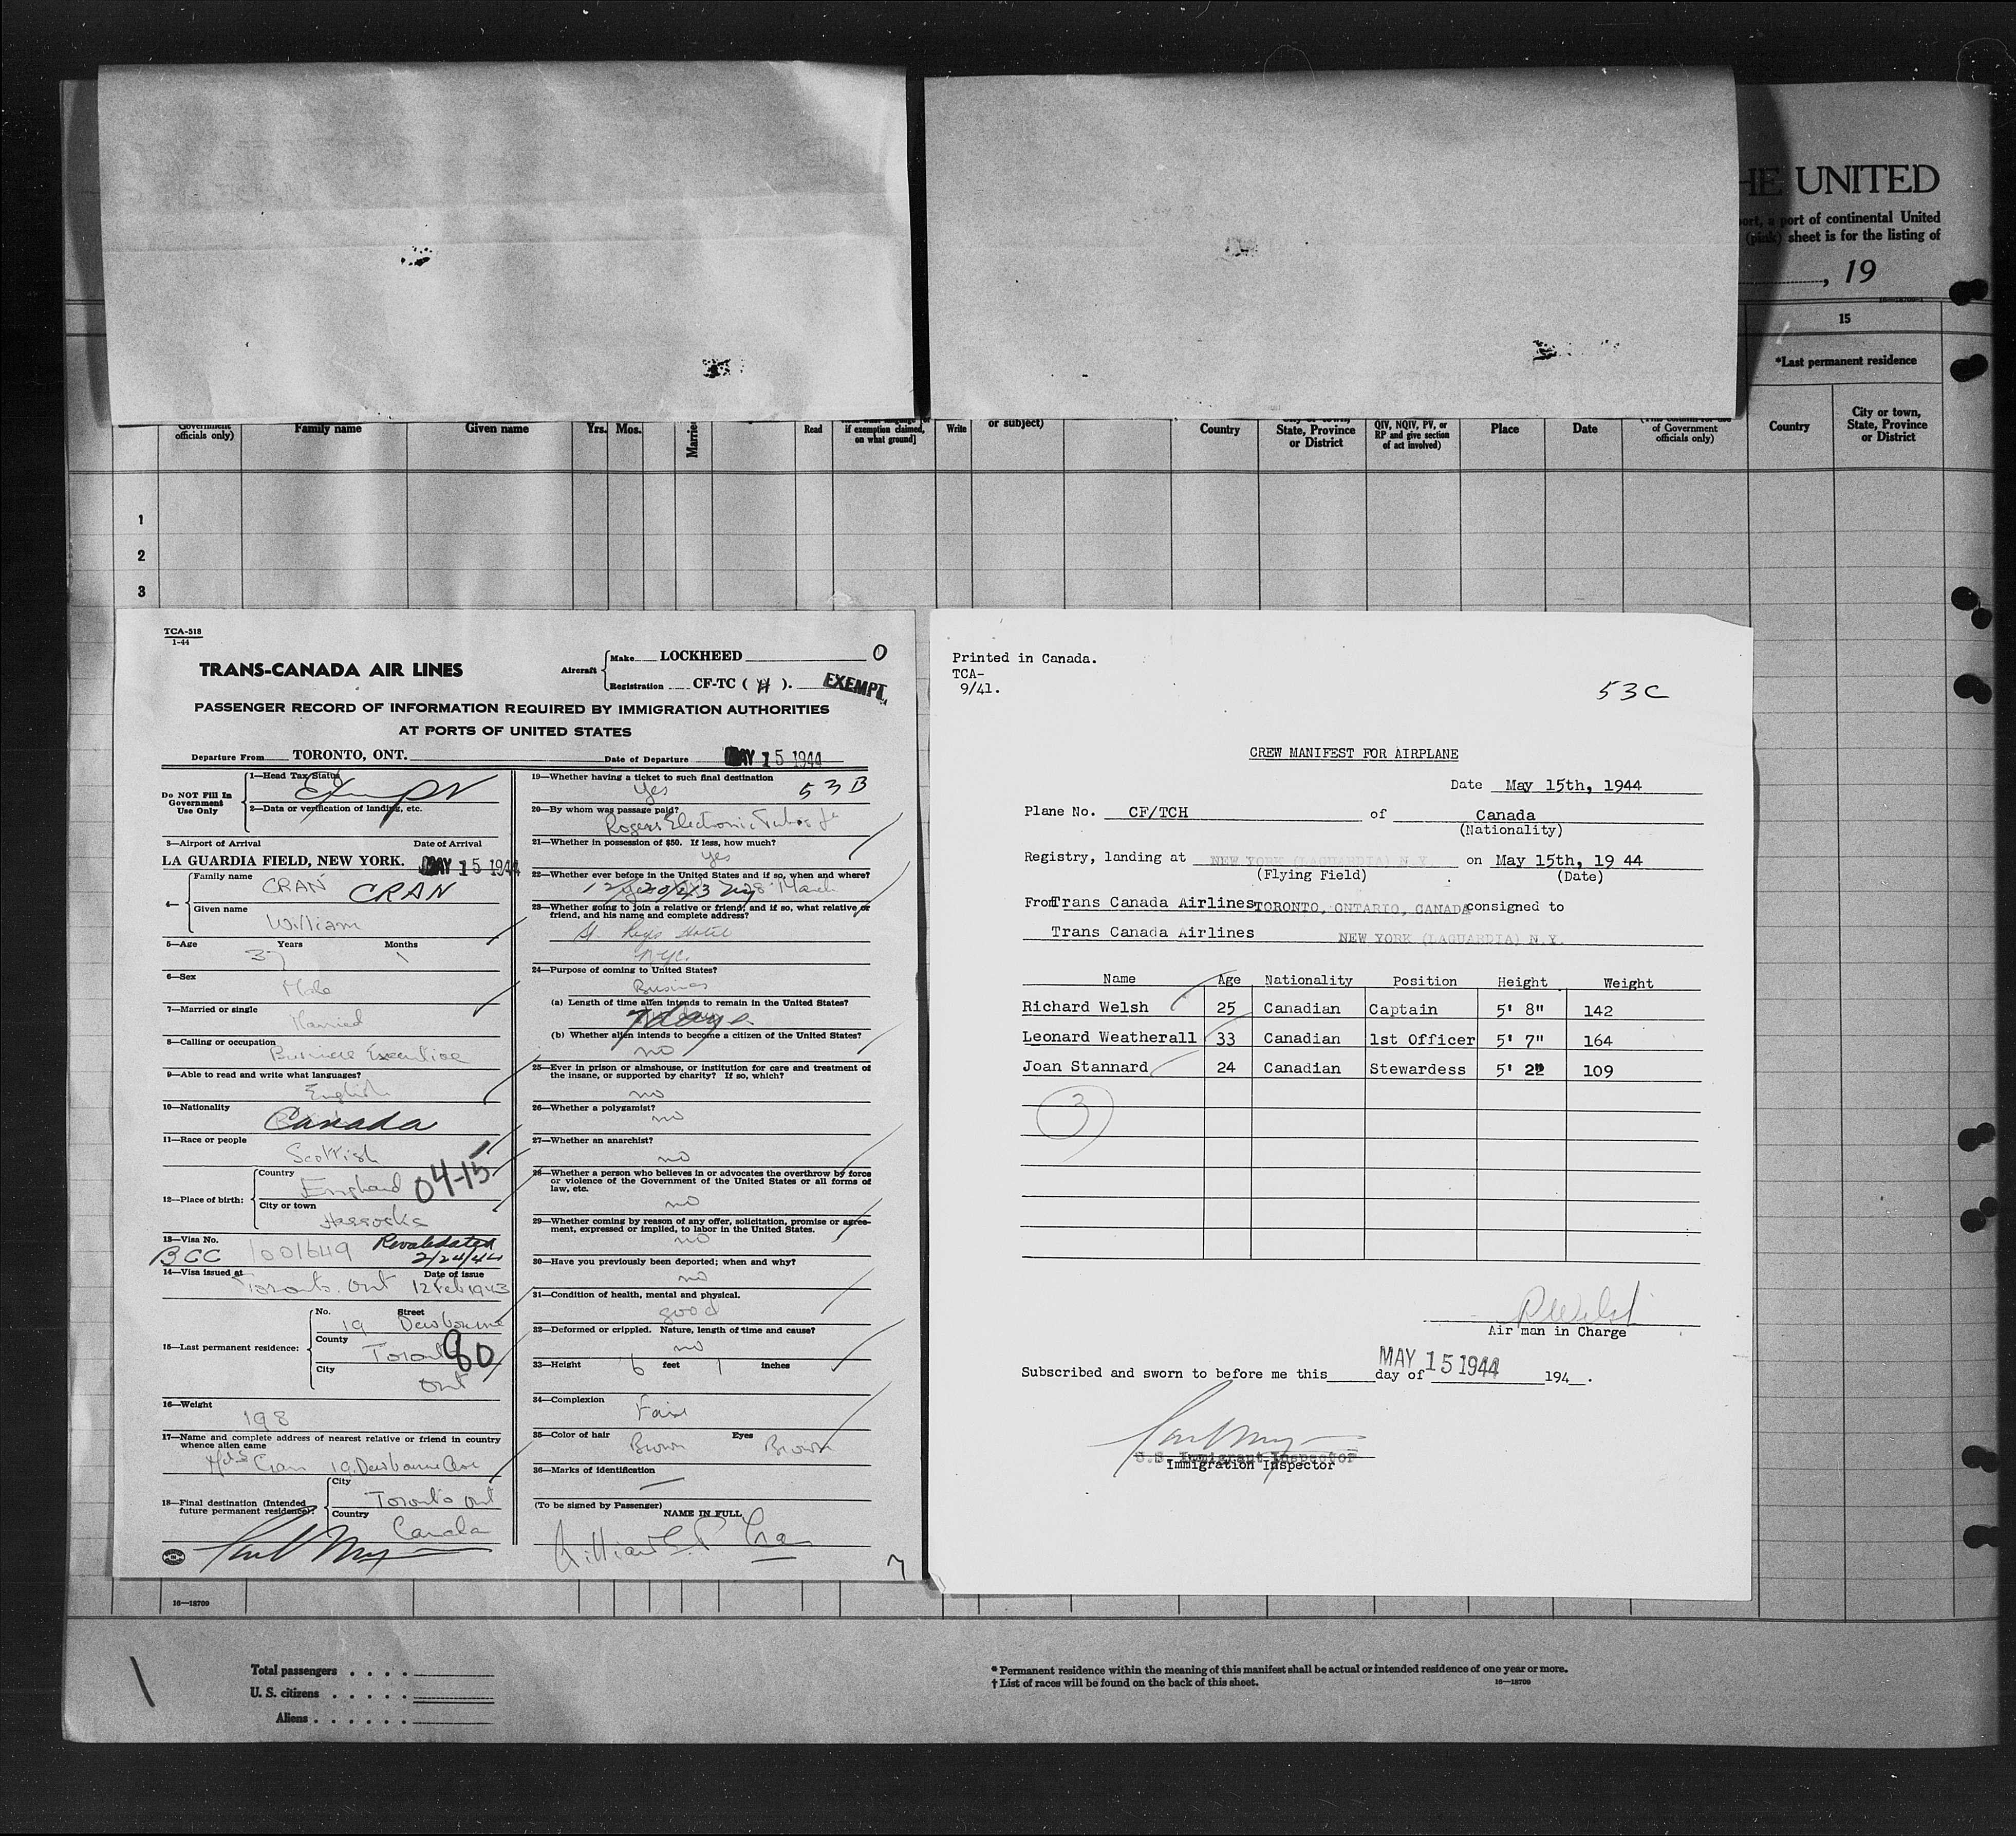 HE UNITED
port, a port of continental United
(pink) sheet is for the listing of
, 19
15
*Last permanent residence
officials only)
Family name
Given name
Yrs.
Mos.
Married
Read
if exemption claimed,
on what ground]
Write
or subject)
Country
State, Province
or District
QIV, NQIV, PV, or
RP and give section
of act involved)
Place
Date
of Government
officials only)
Country
City or town,
State, Province
or District
1
2
3
TCA-518
1-44
TRANS-CANADA AIR LINES
Aircraft
Make LOCKHEED O
Registration CF-TC ( H ). EXEMPT
PASSENGER RECORD OF INFORMATION REQUIRED BY IMMIGRATION AUTHORITIES
AT PORTS OF UNITED STATES
Departure From TORONTO, ONT. Date of Departure MAY 15 1944
Do NOT Fill In
Government
Use Only
1—Head Tax Status
2—Data or verification of landing, etc.
3—Airport of Arrival Date of Arrival
LA GUARDIA FIELD, NEW YORK. MAY 15 1944
4—
Family name
CRAN CRAN
Given name
William
5—Age Years Months
37 1
6—Sex
Male
7—Married or single
Married
8—Calling or occupation
Business Executive
9—Able to read and write what languages?
English
10—Nationality
Canada
11—Race or people
Scottish
12—Place of birth:
Country
England 04-15
City or town
Hassocks
13—Visa No.
BCC 1001649 Revalidated
2/24/44
14—Visa issued at Date of issue
Toronto. Ont 12 Feb 1943
15—Last permanent residence:
No. Street
19 Dewbourne
County
Toronto 80
City
Ont
16—Weight
198
17—Name and complete address of nearest relative or friend in country
whence alien came
Mrs Cran 19 Dewbourne Ave
18—Final destination (Intended
future permanent residence)?
City
Toronto Ont
Country
Canada
19—Whether having a ticket to such final destination
Yes 53B
20—By whom was passage paid?
Rogers Electronic Tubes
21—Whether in possession of $50. If less, how much?
yes
22—Whether ever before in the United States and if so, when and where?
28 March
23—Whether going to join a relative or friend; and if so, what relative or
friend, and his name and complete address?
St. Regis Hotel
NYC.
24—Purpose of coming to United States?
Business
(a) Length of time alien intends to remain in the United States?
7 days
(b) Whether alien intends to become a citizen of the United States?
no
25—Ever in prison or almshouse, or institution for care and treatment of
the insane, or supported by charity? If so, which?
no
26—Whether a polygamist?
no
27—Whether an anarchist?
no
28—Whether a person who believes in or advocates the overthrow by force
or violence of the Government of the United States or all forms of
law, etc.
no
29—Whether coming by reason of any offer, solicitation, promise or agree-
ment, expressed or implied, to labor in the United States.
no
30—Have you previously been deported; when and why?
no
31—Condition of health, mental and physical.
good
32—Deformed or crippled. Nature, length of time and cause?
no
33—Height 6 feet 1 inches
34—Complexion
Fair
35—Color of hair Eyes
Brown Brown
36—Marks of identification
—
(To be signed by Passenger)
NAME IN FULL
Printed in Canada.
TCA-
9/41.
53C
CREW MANIFEST FOR AIRPLANE
Date May 15th, 1944
Plane No. CF/TCH of Canada
(Nationality)
Registry, landing at NEW YORK (LAGUARDIA) N.Y. on May 15th, 19 44
(Flying Field) (Date)
From Trans Canada Airlines TORONTO, ONTARIO, CANADA consigned to
Trans Canada Airlines NEW YORK (LAGUARDIA) N.Y.
Name Age Nationality Position Height Weight
Richard Welsh 25 Canadian Captain 5' 8" 142
Leonard Weatherall 33 Canadian 1st Officer 5' 7" 164
Joan Stannard 24 Canadian Stewardess 5' 2" 109
3
R Welsh
Air man in Charge
Subscribed and sworn to before me this day of MAY 15 1944 194 .
U.S. Immigrant Inspector
Immigration Inspector
16—18709
Total passengers . . . .
U. S. citizens . . . . .
Aliens . . . . . .
* Permanent residence within the meaning of this manifest shall be actual or intended residence of one year or more.
† List of races will be found on the back of this sheet. 16—18709